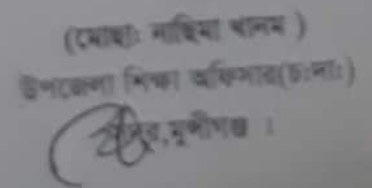 (মোছাঃ নাছিমা খানম )
উপজেলা শিক্ষা অফিসার(চঃদাঃ)
সদর,মুন্সীগঞ্জ ।